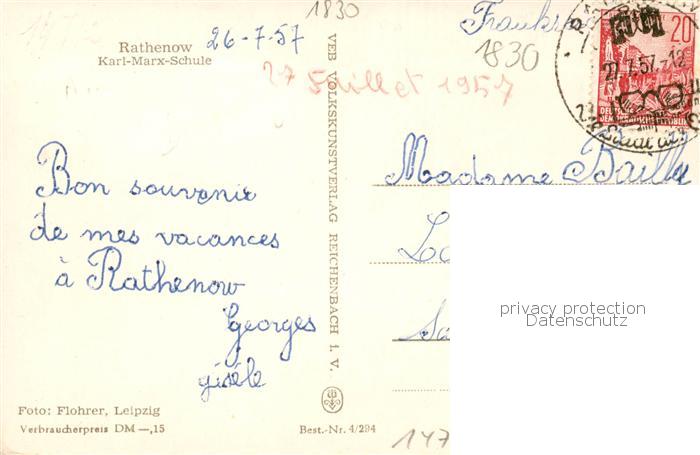 1830
Rathenow
Karl-Marx-Schule
26-7-57
27 Juillet 1957
1830
20
27.7.57.-12
DEUTSCHE
DEMOKRATISCHE REPUBLIK
Bon souvenir
de mes vacances
à Rathenow
Georges
gisèle
VEB VOLKSKUNSTVERLAG REICHENBACH i. V.
Madame Bailly
privacy protection
Datenschutz
Foto: Flohrer, Leipzig
Verbraucherpreis DM —,15
Best.-Nr. 4/294
147